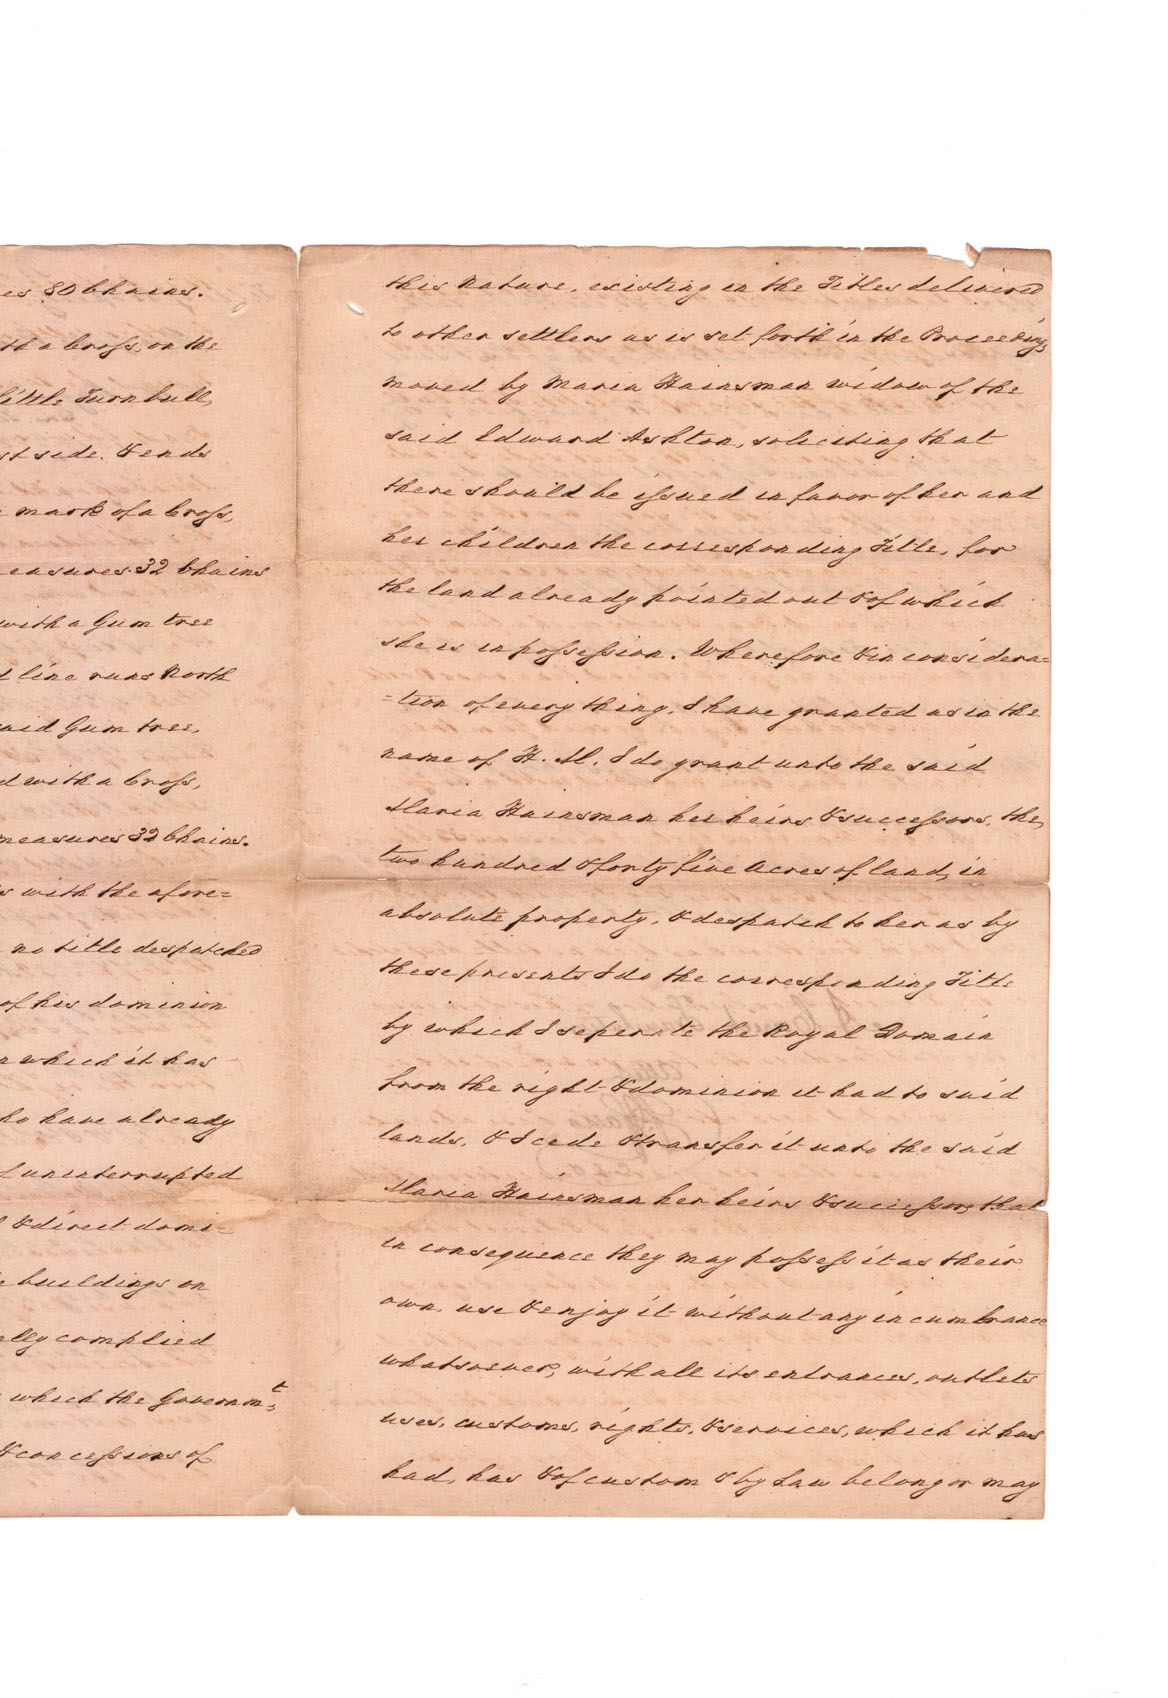 es 80 Chains.
th a Cross, on the
little Turnbull,
st side. & ends
mark of a Cross,
easures 32 Chains
with a Gum tree
line runs North
aid Gum tree,
d with a Cross,
measures 32 Chains.
s with the afore=
no title despatched
of his dominion
which it has
ho have already
uninterrupted
& direct domi=
buildings on
ally complied
which the Governmt,
& concessions of
this nature, existing in the Titles delivered
to other settlers as is set forth in the Proceedings
moved by Maria Hainsman widow of the
said Edward Ashton, soliciting that
there should be issued in favor of her and
her children the corresponding Title, for
the land already pointed out & of which
she is in possession. Wherefore & in considera=
=tion of every thing, I have granted as in the
name of H. M. I do grant unto the said
Maria Hainsman her heirs & successors, the
two hundred & forty five Acres of land, in
absolute property, & despatch to her as by
these presents I do the corresponding Title
by which I seperate the Royal Domain
from the right & dominion it had to said
lands, & I cede & transfer it unto the said
Maria Hainsman her heirs & successors, that
in consequence they may possess it as their
own, use & enjoy it without any incumbrance
whatsoever, with all its entrances, outlets
uses, customs, rights, & services, which it has
had, has & of custom & by Law belong or may